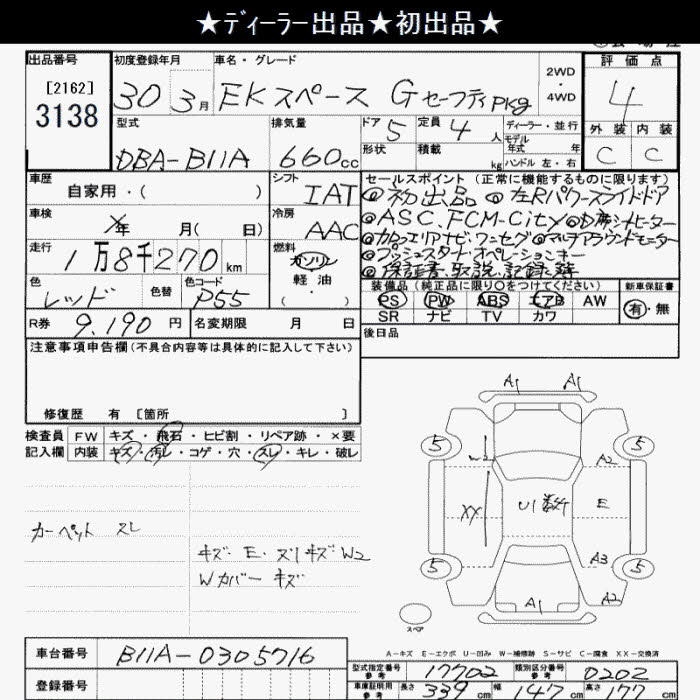 ★ディーラー出品★初出品★
出品番号 初度登録年月 車名・グレード 評価点
[2162]
3138
30 3月 EKスペース Gセーフティpkg 2WD ・ 4WD 4
型式 排気量 ドア 5 定員 4 人 ディーラー・並行 外装 内装
DBA-B11A 660cc 形状 積載 kg モデル年式 年 ハンドル 左・右 C C
車歴 シフト セールスポイント (正常に機能するものに限ります)
自家用・( ) IAT ◎初出品 ◎左Rパワースライドドア
車検 冷房 ◎ASC.FCM-City ◎D席シートヒーター
年 月( 日) AAC ◎カロッツェリアナビ・ワンセグ ◎マルチアラウンドモニター
走行 燃料 ◎プッシュスタート・オペレーションキー
1万8千270km ガソリン ◎保証書、取説、記録簿
色 色替 色コード 軽油 装備品 (純正品に限り○をつけてください) 新車保証書
レッド P55 ( ・ ) PS PW ABS エアB AW 有・無
SR ナビ TV カワ
R券 9,190 円 名変期限 月 日 後日品
注意事項申告欄 (不具合内容等は具体的に記入して下さい)
修復歴 有 [箇所 ]
検査員 FW キズ・飛石・ヒビ割・リペア跡・×要
記入欄 内装 キズ・汚レ・コゲ・穴・スレ・キレ・破レ
カーペット スレ
キズ・E・スリキズW2
Wカバー キズ
A1 A1
5 5
W2 A2
XX U1数ケ E
A3
5 5
A1 A2
スペア
A-キズ E-エクボ U-凹み W-補修跡 S-サビ C-腐食 XX-交換済
車台番号 B11A-0305716
登録番号
型式指定番号 参考 17702 類別区分番号 参考 0202
車庫証明用 参考 長さ 339cm 幅 147cm 高さ 177cm